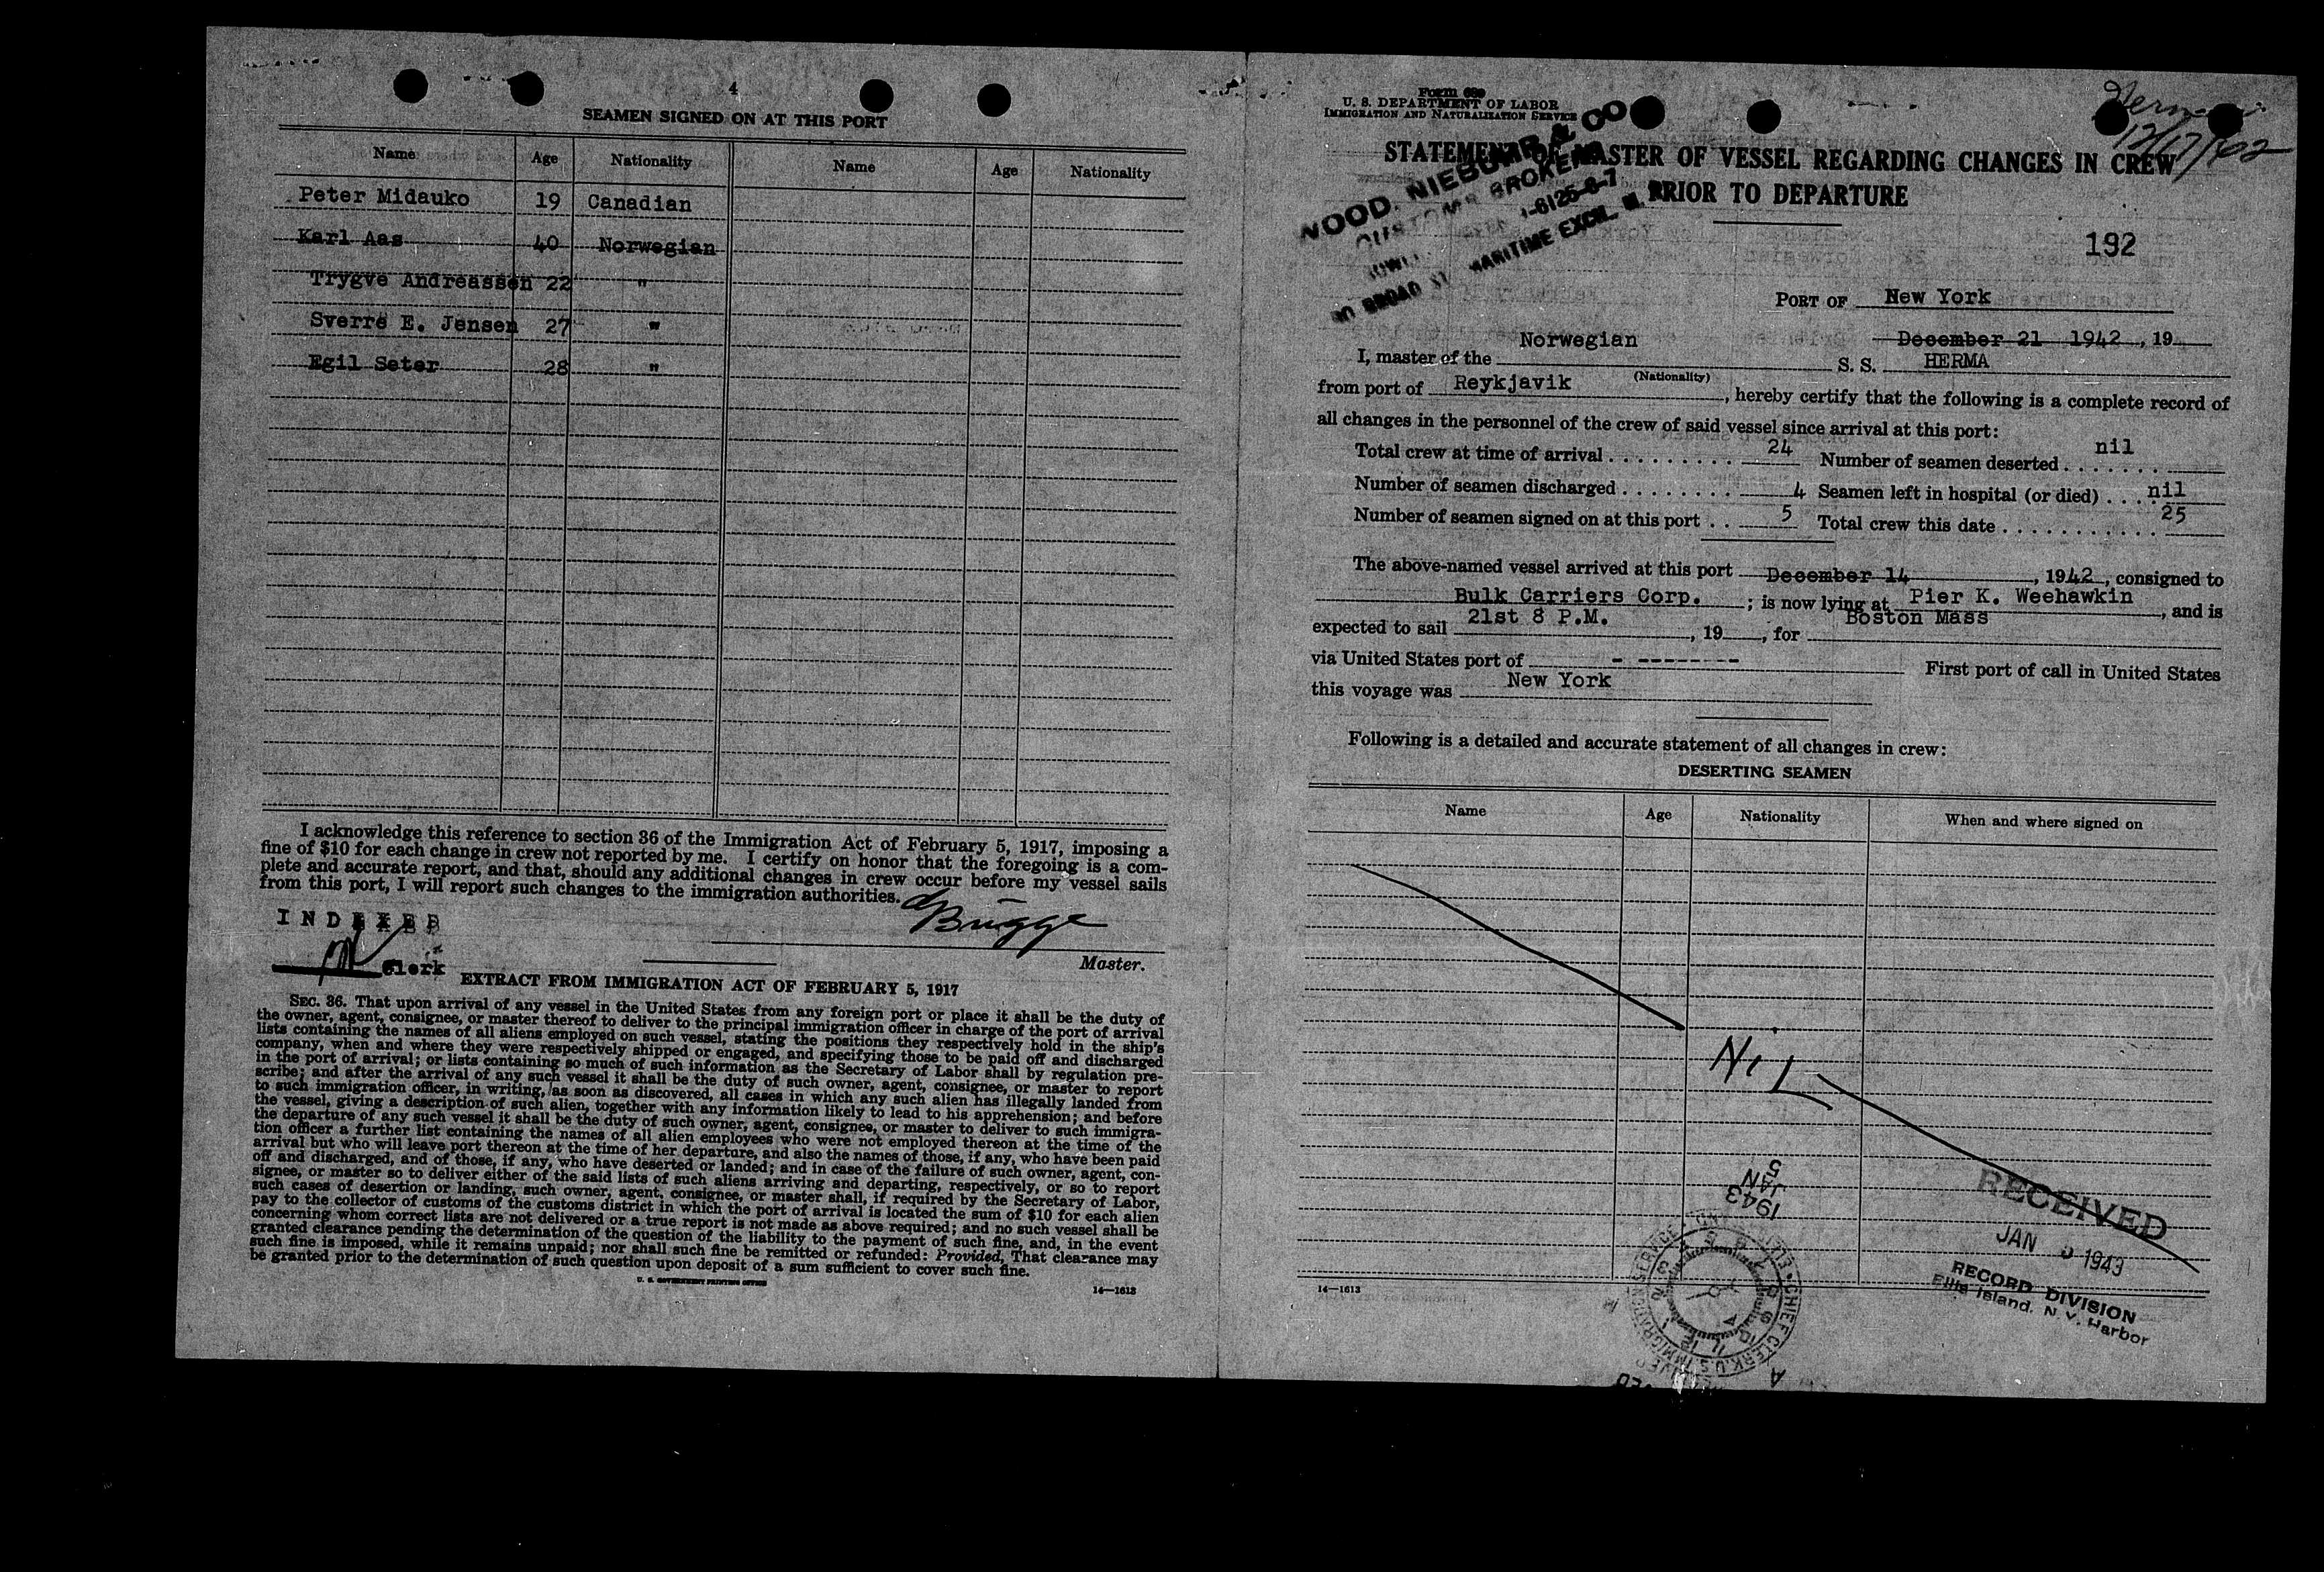 4
SEAMEN SIGNED ON AT THIS PORT
Name Age Nationality Name Age Nationality
Peter Midauko 19 Canadian
Karl Aas 40 Norwegian
Trygve Andreassen 22 "
Sverre E. Jensen 27 "
Egil Seter 28 "
I acknowledge this reference to section 36 of the Immigration Act of February 5, 1917, imposing a
fine of $10 for each change in crew not reported by me. I certify on honor that the foregoing is a com-
plete and accurate report, and that, should any additional changes in crew occur before my vessel sails
from this port, I will report such changes to the immigration authorities.
Bugge
INDEXED
Clerk
Master.
EXTRACT FROM IMMIGRATION ACT OF FEBRUARY 5, 1917
SEC. 36. That upon arrival of any vessel in the United States from any foreign port or place it shall be the duty of
the owner, agent, consignee, or master thereof to deliver to the principal immigration officer in charge of the port of arrival
lists containing the names of all aliens employed on such vessel, stating the positions they respectively hold in the ship's
company, when and where they were respectively shipped or engaged, and specifying those to be paid off and discharged
in the port of arrival; or lists containing so much of such information as the Secretary of Labor shall by regulation pre-
scribe; and after the arrival of any such vessel it shall be the duty of such owner, agent, consignee, or master to report
to such immigration officer, in writing, as soon as discovered, all cases in which any such alien has illegally landed from
the vessel, giving a description of such alien, together with any information likely to lead to his apprehension; and before
the departure of any such vessel it shall be the duty of such owner, agent, consignee, or master to deliver to such immigra-
tion officer a further list containing the names of all alien employees who were not employed thereon at the time of the
arrival but who will leave port thereon at the time of her departure, and also the names of those, if any, who have been paid
off and discharged, and of those, if any, who have deserted or landed; and in case of the failure of such owner, agent, con-
signee, or master so to deliver either of the said lists of such aliens arriving and departing, respectively, or so to report
such cases of desertion or landing, such owner, agent, consignee, or master shall, if required by the Secretary of Labor,
pay to the collector of customs of the customs district in which the port of arrival is located the sum of $10 for each alien
concerning whom correct lists are not delivered or a true report is not made as above required; and no such vessel shall be
granted clearance pending the determination of the question of the liability to the payment of such fine, and, in the event
such fine is imposed, while it remains unpaid; nor shall such fine be remitted or refunded: Provided, That clearance may
be granted prior to the determination of such question upon deposit of a sum sufficient to cover such fine.
U. S. GOVERNMENT PRINTING OFFICE
14—1613
Form 689
U. S. DEPARTMENT OF LABOR
IMMIGRATION AND NATURALIZATION SERVICE
WOOD, NIEBUHR & CO
CUSTOMS BROKERS
-6125-6-7
80 BROAD ST. MARITIME EXCH.
STATEMENT OF MASTER OF VESSEL REGARDING CHANGES IN CREW
PRIOR TO DEPARTURE
192
PORT OF New York
December 21 1942, 19
I, master of the Norwegian S. S. HERMA
(Nationality)
from port of Reykjavik, hereby certify that the following is a complete record of
all changes in the personnel of the crew of said vessel since arrival at this port:
Total crew at time of arrival 24 Number of seamen deserted nil
Number of seamen discharged 4 Seamen left in hospital (or died) nil
Number of seamen signed on at this port 5 Total crew this date 25
The above-named vessel arrived at this port December 14, 1942, consigned to
Bulk Carriers Corp.; is now lying at Pier K. Weehawkin, and is
expected to sail 21st 8 P.M., 19, for Boston Mass
via United States port of - - - - - - - - First port of call in United States
this voyage was New York
Following is a detailed and accurate statement of all changes in crew:
DESERTING SEAMEN
Name Age Nationality When and where signed on
NIL
1943
JAN
5
RECEIVED
JAN 1943
RECORD DIVISION
Ellis Island, N. Y. Harbor
CHIEF CLERK U.S. IMMIGRATION SERVICE
14—1613